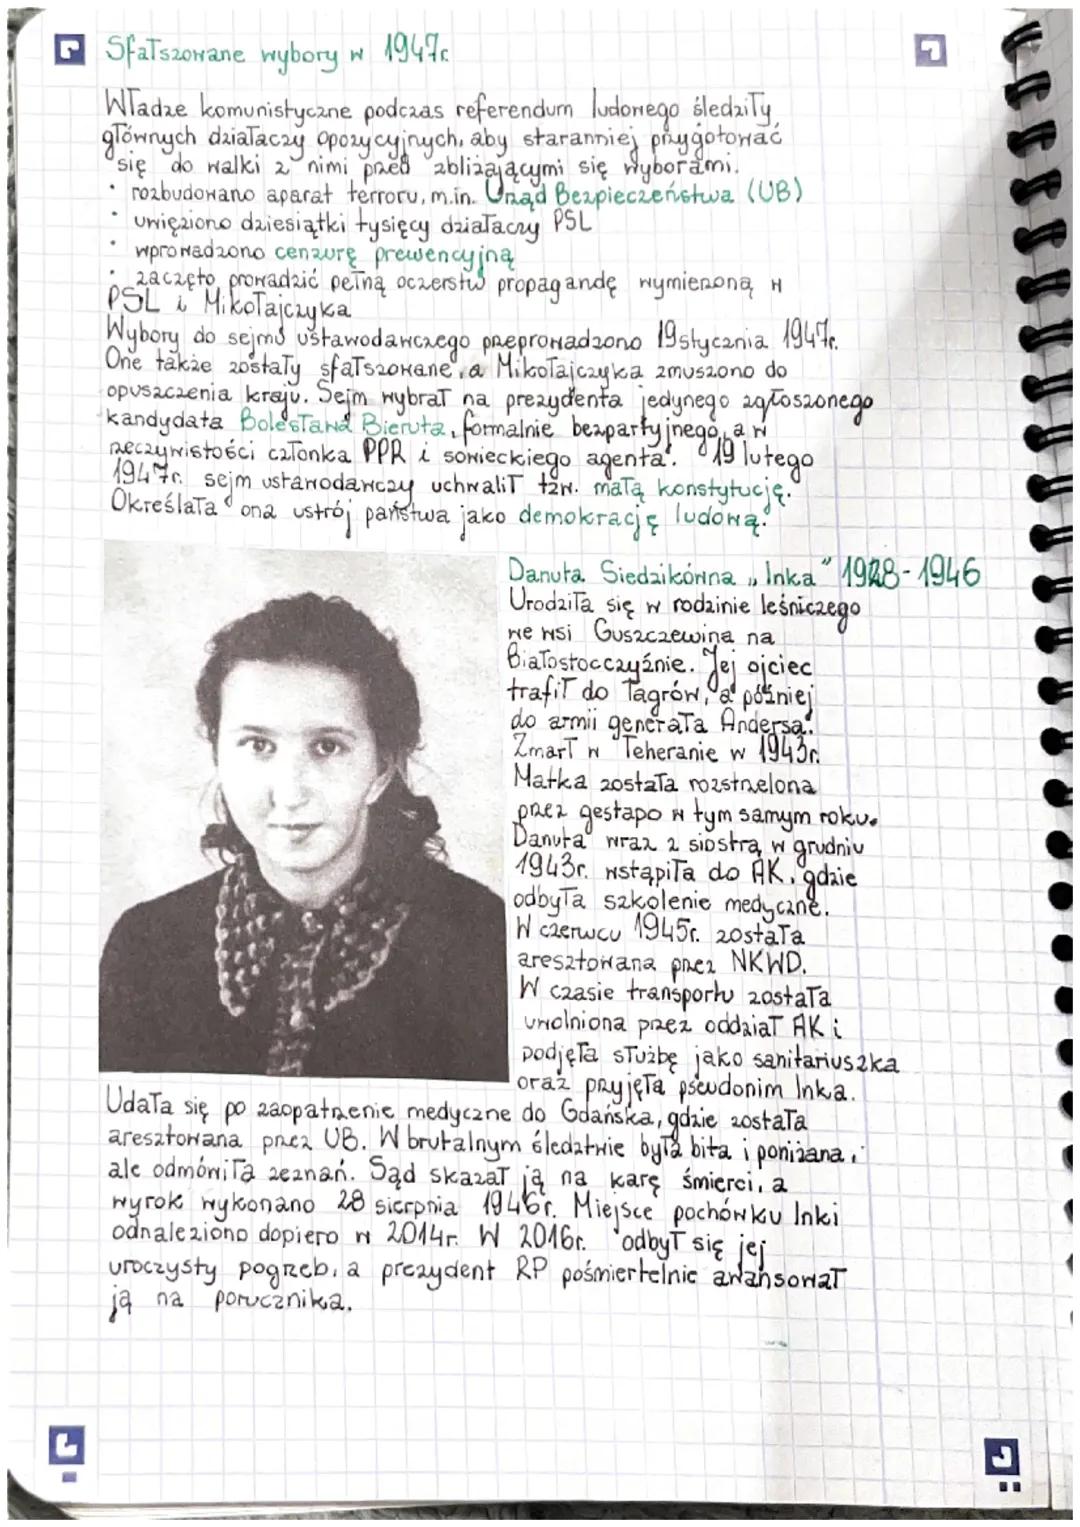 Sfałszowane wybory w 1947r.
Władze komunistyczne podczas referendum ludowego śledziły
głównych działaczy opozycyjnych, aby staranniej przygotować
się do walki z nimi przed zbliżającymi się wyborami.
• rozbudowano aparat terroru, m.in. Urząd Bezpieczeństwa (UB)
• uwięziono dziesiątki tysięcy działaczy PSL
• wprowadzono cenzurę prewencyjną
• zaczęto prowadzić pełną oczerstw propagandę wymierzoną w
PSL i Mikołajczyka
Wybory do sejmu ustawodawczego przeprowadzono 19 stycznia 1947r.
One także zostały sfałszowane, a Mikołajczyka zmuszono do
opuszczenia kraju. Sejm wybrał na prezydenta jedynego zgłoszonego
kandydata Bolesława Bieruta, formalnie bezpartyjnego, a w
rzeczywistości członka PPR i sowieckiego agenta. 19 lutego
1947r. sejm ustawodawczy uchwalił tzw. małą konstytucję.
Określała ona ustrój państwa jako demokrację ludową.
Danuta Siedzikówna „Inka" 1928-1946
Urodziła się w rodzinie leśniczego
we wsi Guszczewina na
Białostocczyźnie. Jej ojciec
trafił do łagrów, a później
do armii generała Andersa.
Zmarł w Teheranie w 1943r.
Matka została rozstrzelona
przez gestapo w tym samym roku.
Danuta wraz z siostrą w grudniu
1943r. wstąpiła do AK, gdzie
odbyła szkolenie medyczne.
W czerwcu 1945r. została
aresztowana przez NKWD.
W czasie transportu została
uwolniona przez oddział AK i
podjęła służbę jako sanitariuszka
oraz przyjęła pseudonim Inka.
Udała się po zaopatrzenie medyczne do Gdańska, gdzie została
aresztowana przez UB. W brutalnym śledztwie była bita i poniżana,
ale odmówiła zeznań. Sąd skazał ją na karę śmierci, a
wyrok wykonano 28 sierpnia 1946r. Miejsce pochówku Inki
odnaleziono dopiero w 2014r. W 2016r. odbył się jej
uroczysty pogrzeb, a prezydent RP pośmiertelnie awansował
ją na porucznika.